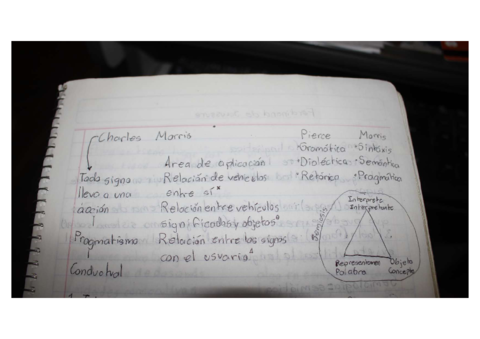 Charles Morris
Todo signo
lleva a una
acción
Pragmatismo
Conductual
Área de aplicación
Relación de vehículos
entre sí*
Relación entre vehículos
significados y objetos°
Relación entre los signos
con el usuario
Pierce Morris
•Gramática •Sintáxis
•Dialéctica •Semántica
•Retórica •Pragmática
Interprete
Interpretante
Representamen Objeto
Palabra Concepto